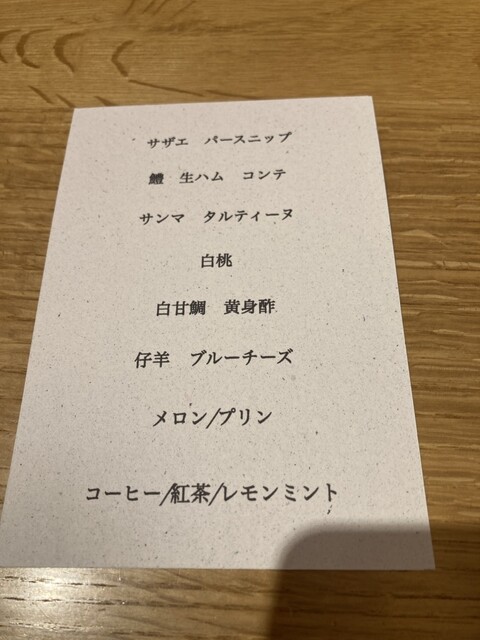 サザエ　パースニップ
鱧　生ハム　コンテ
サンマ　タルティーヌ
白桃
白甘鯛　黄身酢
仔羊　ブルーチーズ
メロン/プリン
コーヒー/紅茶/レモンミント